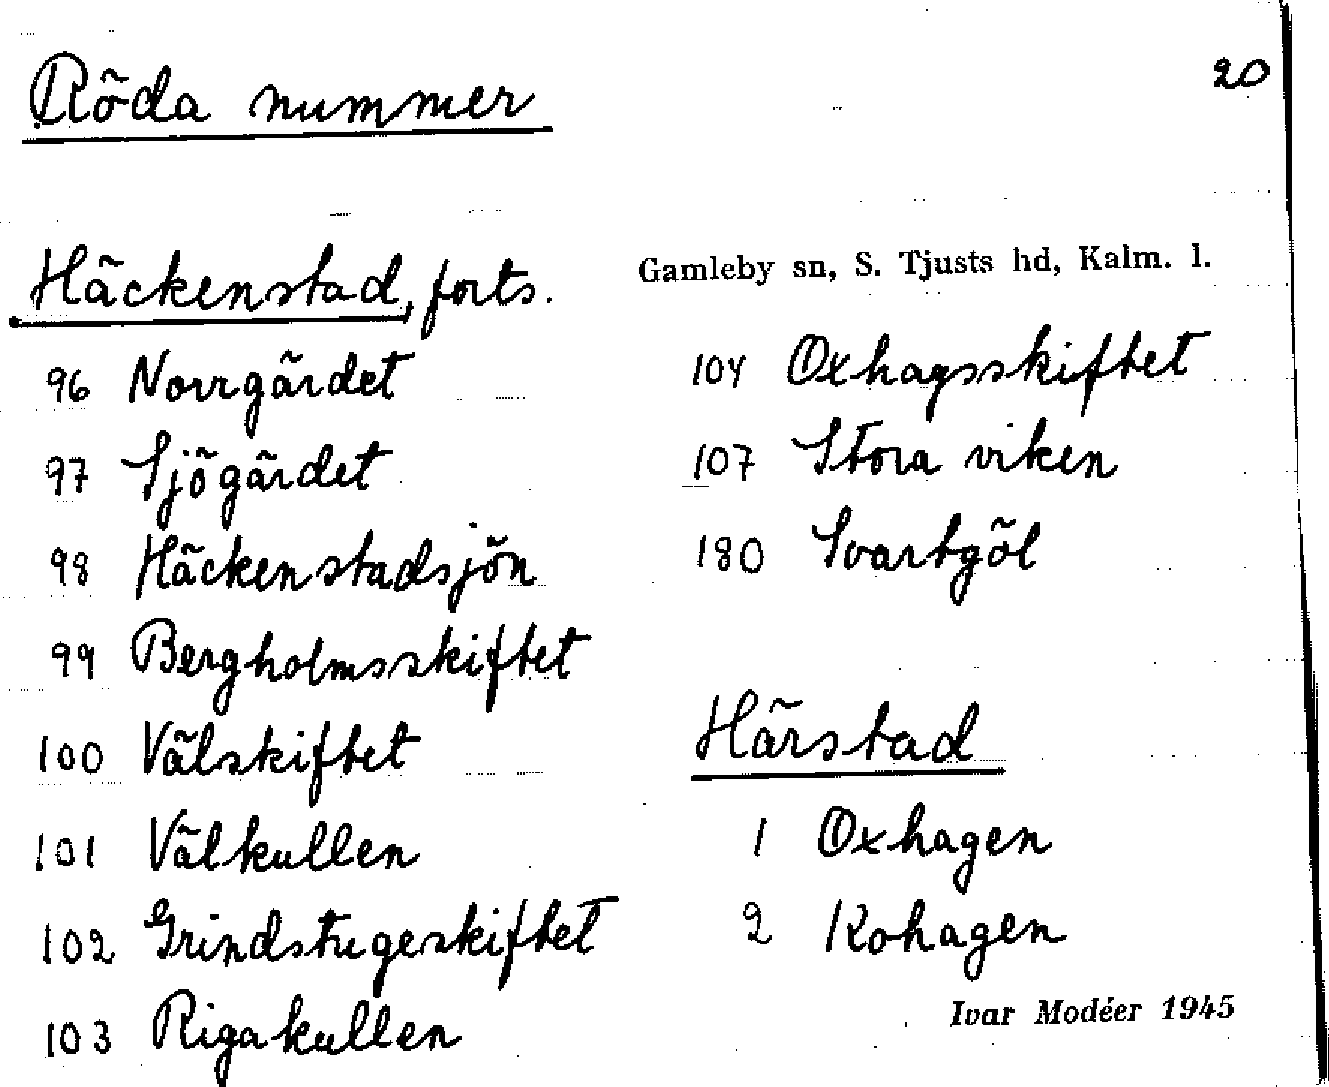 Röda nummer
20
Häckenstad, forts.
Gamleby sn, S. Tjusts hd, Kalm. l.
96 Norrgärdet
97 Sjögärdet
98 Häckenstadsjön
99 Bergholmsskiftet
100 Välskiftet
101 Välkullen
102 Grindstugeskiftet
103 Rigakullen
104 Oxhagsskiftet
107 Stora viken
180 Svartgöl
Härstad
1 Oxhagen
2 Kohagen
Ivar Modéer 1945